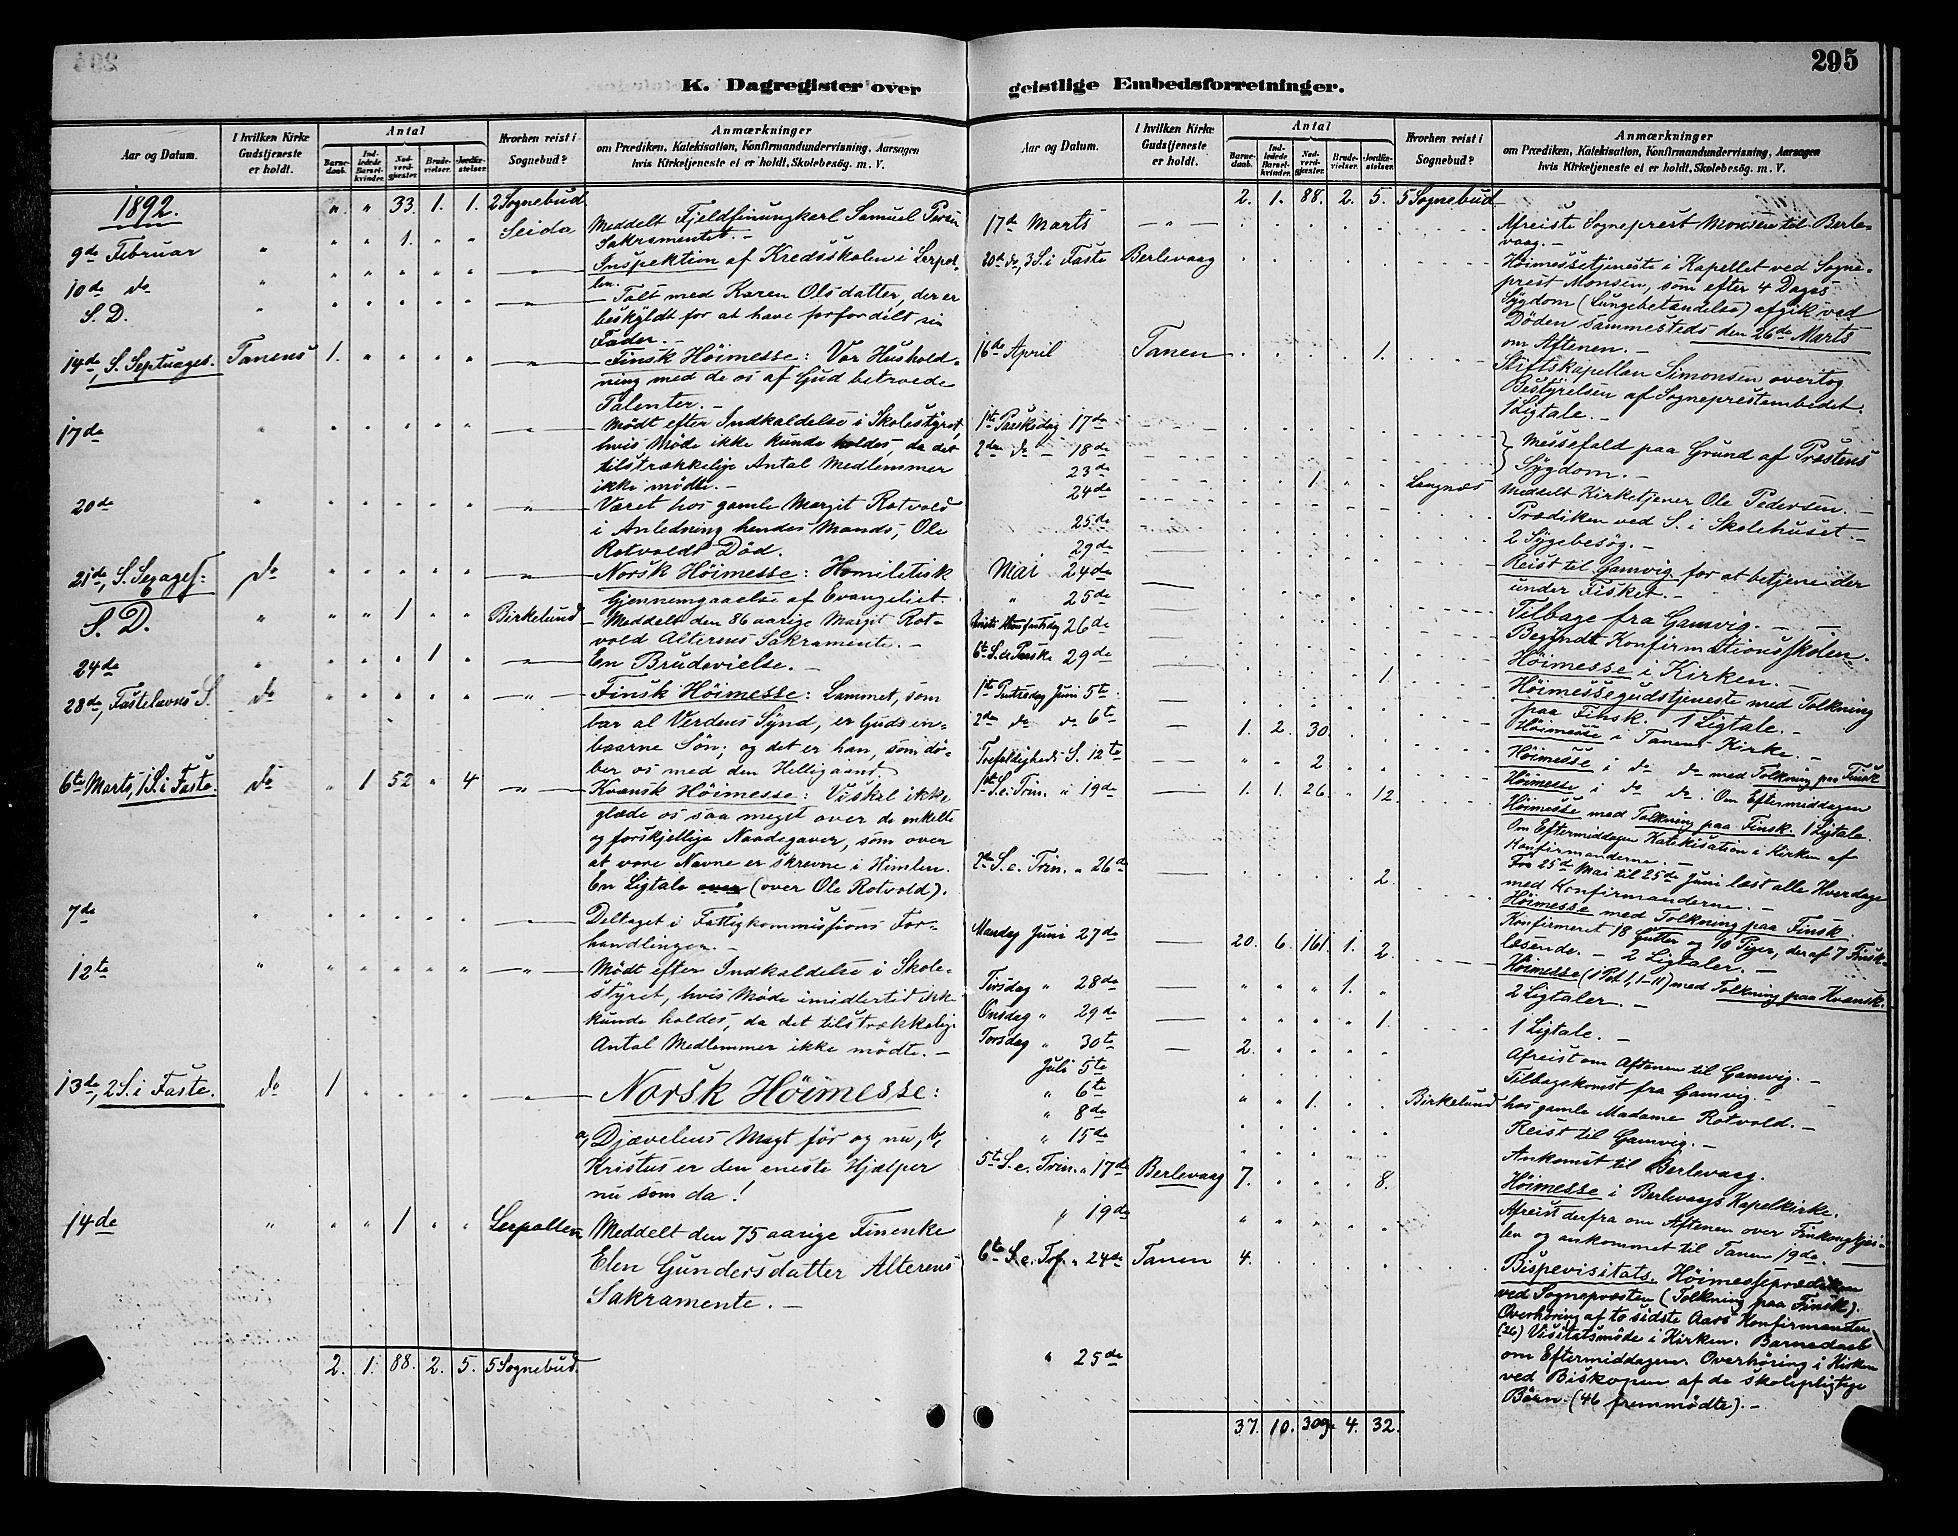 295
K. Dagregister over geistlige Embedsforretninger.
Aar og Datum.
I hvilken Kirke Gudstjeneste er holdt.
Antal
Barne-daab.
Ind-ledede Barsel-kvinder.
Nad-verd-gjæster.
Brude-vielser.
Jordfæ-stelser.
Hvorhen reist i Sognebud?
Anmærkninger
om Prædiken, Katekisation, Konfirmandundervisning, Aarsagen
hvis Kirketjeneste ei er holdt, Skolebesög. m. V.
1892. " " 33. 1. 1. 2 Sognebud
9de Februar " " " 1. " " Seida Meddelt Fjeldfinungkarl Samuel
Sakramentet. —
10de do " Inspektion af Kredsskolen i Serpol-
len.
S. D. " — Talt med Karen Olsdatter, der er
beskyldt for at have forfordelt sin
Fader. —
14de, S. Septuages. Tanens 1. " " " " — Finsk Höimesse: Vor Hushold-
ning med de os af Gud betroede
Talenter. —
17de " — Mödt efter Indkaldelse i Skolestyret,
hvis Möde ikke kunde holdes, da det
tilstrækkelige Antal Medlemmer
ikke mödte. —
20de " — Været hos gamle Margit Rotvold
i Anledning hendes Mands, Ole
Rotvolds Död.
21de, S. Sexages: do " — Norsk Höimesse: Homiletisk
Gjennemgaaelse af Evangeliet.
S. D. " " " 1 " " Birkelund — Meddelt den 86 aarige Margit Rot-
vold Alterens Sakramente. —
24de " " " " 1 " — En Brudevielse. —
28de, Fastelavns S. do " " " " " — Finsk Höimesse: Lammet, som
bar al Verdens Synd, er Guds en-
baarne Sön; og det er han, som dö-
ber os med den Helligaand.
6te Marts, 1 S. i Faste. do " 1 52 " 4 — Kvænsk Höimesse: Vi skal ikke
glæde os saa meget over de enkelte
og forskjellige Naadegaver, som over
at vore Navne er skrevne i Himlen.
En Ligtale over (over Ole Rotvold).
7de " — Deltaget i Fattigkommissions For-
handlingen. —
12te " " " " " " — Mödt efter Indkaldelse i Skole-
styret, hvis Möde imidlertid ikke
kunde holdes, da det tilstrækkelige
Antal Medlemmer ikke mödte. —
13de, 2 S. i Faste. do 1 — Norsk Höimesse:
a, Djævelens Magt för og nu, b,
Kristus er den eneste Hjælper
nu som da!
14de " " " 1 " " Serpollen Meddelt den 75 aarige Finenke
Elen Gundersdatter Alterens
Sakramente. —
2. 1. 88. 2. 5. 5 Sognebud.
Aar og Datum.
I hvilken Kirke Gudstjeneste er holdt.
Antal
Barne-daab.
Ind-ledede Barsel-kvinder.
Nad-verd-gjæster.
Brude-vielser.
Jordfæ-stelser.
Hvorhen reist i Sognebud?
Anmærkninger
om Prædiken, Katekisation, Konfirmandundervisning, Aarsagen
hvis Kirketjeneste ei er holdt, Skolebesög. m. V.
2. 1. 88. 2. 5. 5 Sognebud
17de Marts — " — Afreiste Sogneprest Monsen til Berle-
vaag. —
20de do, 3 S. i Faste Berlevaag Höimessetjeneste i Kapellet ved Sogne-
prest Monsen, som efter 4 Dages
Sygdom (Lungebetændelse) afgik ved
Döden sammesteds den 26de Marts
om Aftenen. —
16de April Tanen 1. Stiftskapellan Simonsen overtog
Bestyrelsen af Sogneprestembedet.
1 Ligtale. —
1ste Paaskedag 17de
2den do — 18de } Messefald paa Grund af Præstens
Sygdom. —
23de
24de 1 " " Langnæs Meddelt Kirketjener Ole Pedersen. —
25de Prædiken ved S. i Skolehuset —
29de 2 Sygebesög. —
Mai 24de Reist til Gamvig for at betjene der
under Fisket. —
" 25de Tilbage fra Gamvig. —
26de Begyndt Konfirmationsskolen.
6te S. e. Paaske 29de 1 Höimesse i Kirken. —
1ste Pintsedag Juni 5te Höimessegudstjeneste med Tolkning
paa Finsk. 1 Ligtale. —
2den do do 6te — 1. 2. 30. Höimesse i Tanens Kirke. —
Trefoldigheds S. 12te " " 2 Höimesse i do do med Tolkning paa Finsk
1ste S. e. Trin. " 19de — 1. 1. 26. " 12. Höimesse i do do. Om Eftermiddagen
Höimesse med Tolkning paa Finsk. 1 Ligtale
Om Eftermiddagen Katekisation i Kirken af
Konfirmanderne. —
2den S. e. Trin. " 26de 2. Fra 25de Mai til 25de Juni læst alle Hverdage
med Konfirmanderne. —
Höimesse med Tolkning paa Finsk.
Mandag Juni 27de — 20. 6. 161. 1. 2. Konfirmeret 18 Gutter og 10 Piger, deraf 7 Finsk-
læsende. — 2 Ligtaler. —
Tirsdag " 28de — " " " 1. " Höimesse (1 Pet. 1, 1-11) med Tolkning paa Kvænsk.
2 Ligtaler. —
Onsdag " 29de — " " " " 1. 1 Ligtale. —
Torsdag " 30te — 2. Afreist om Aftenen til Gamvig. —
Juli 5te Tilbagekomst fra Gamvig. —
" 6te " " 1. Birkelund hos gamle Madame Rotvold. —
" 8de Reist til Gamvig. —
" 15de Ankomst til Berlevaag.
5te S. e. Trin. " 17de Berlevaag 7. " " " 8. Höimesse i Berlevaags Kapelkirke.
" 19de Afreist derfra om Aftenen over Finkongkjei-
len og ankommet til Tanen 19de. —
6te S. e. Tref. " 24de Tanen 4. Bispevisitats. Höimesseprædiken
ved Sognepræsten (Tolkning paa Finsk).
Overhöring af to sidste Aars Konfirmander
(26) Visitatsmöde i Kirken. Barnedaab
" 25de om Eftermiddagen. Overhöring i Kirken
ved Biskopen af de skolepligtige
Börn (46 fremmödte). —
37. 10. 309. 4. 32.